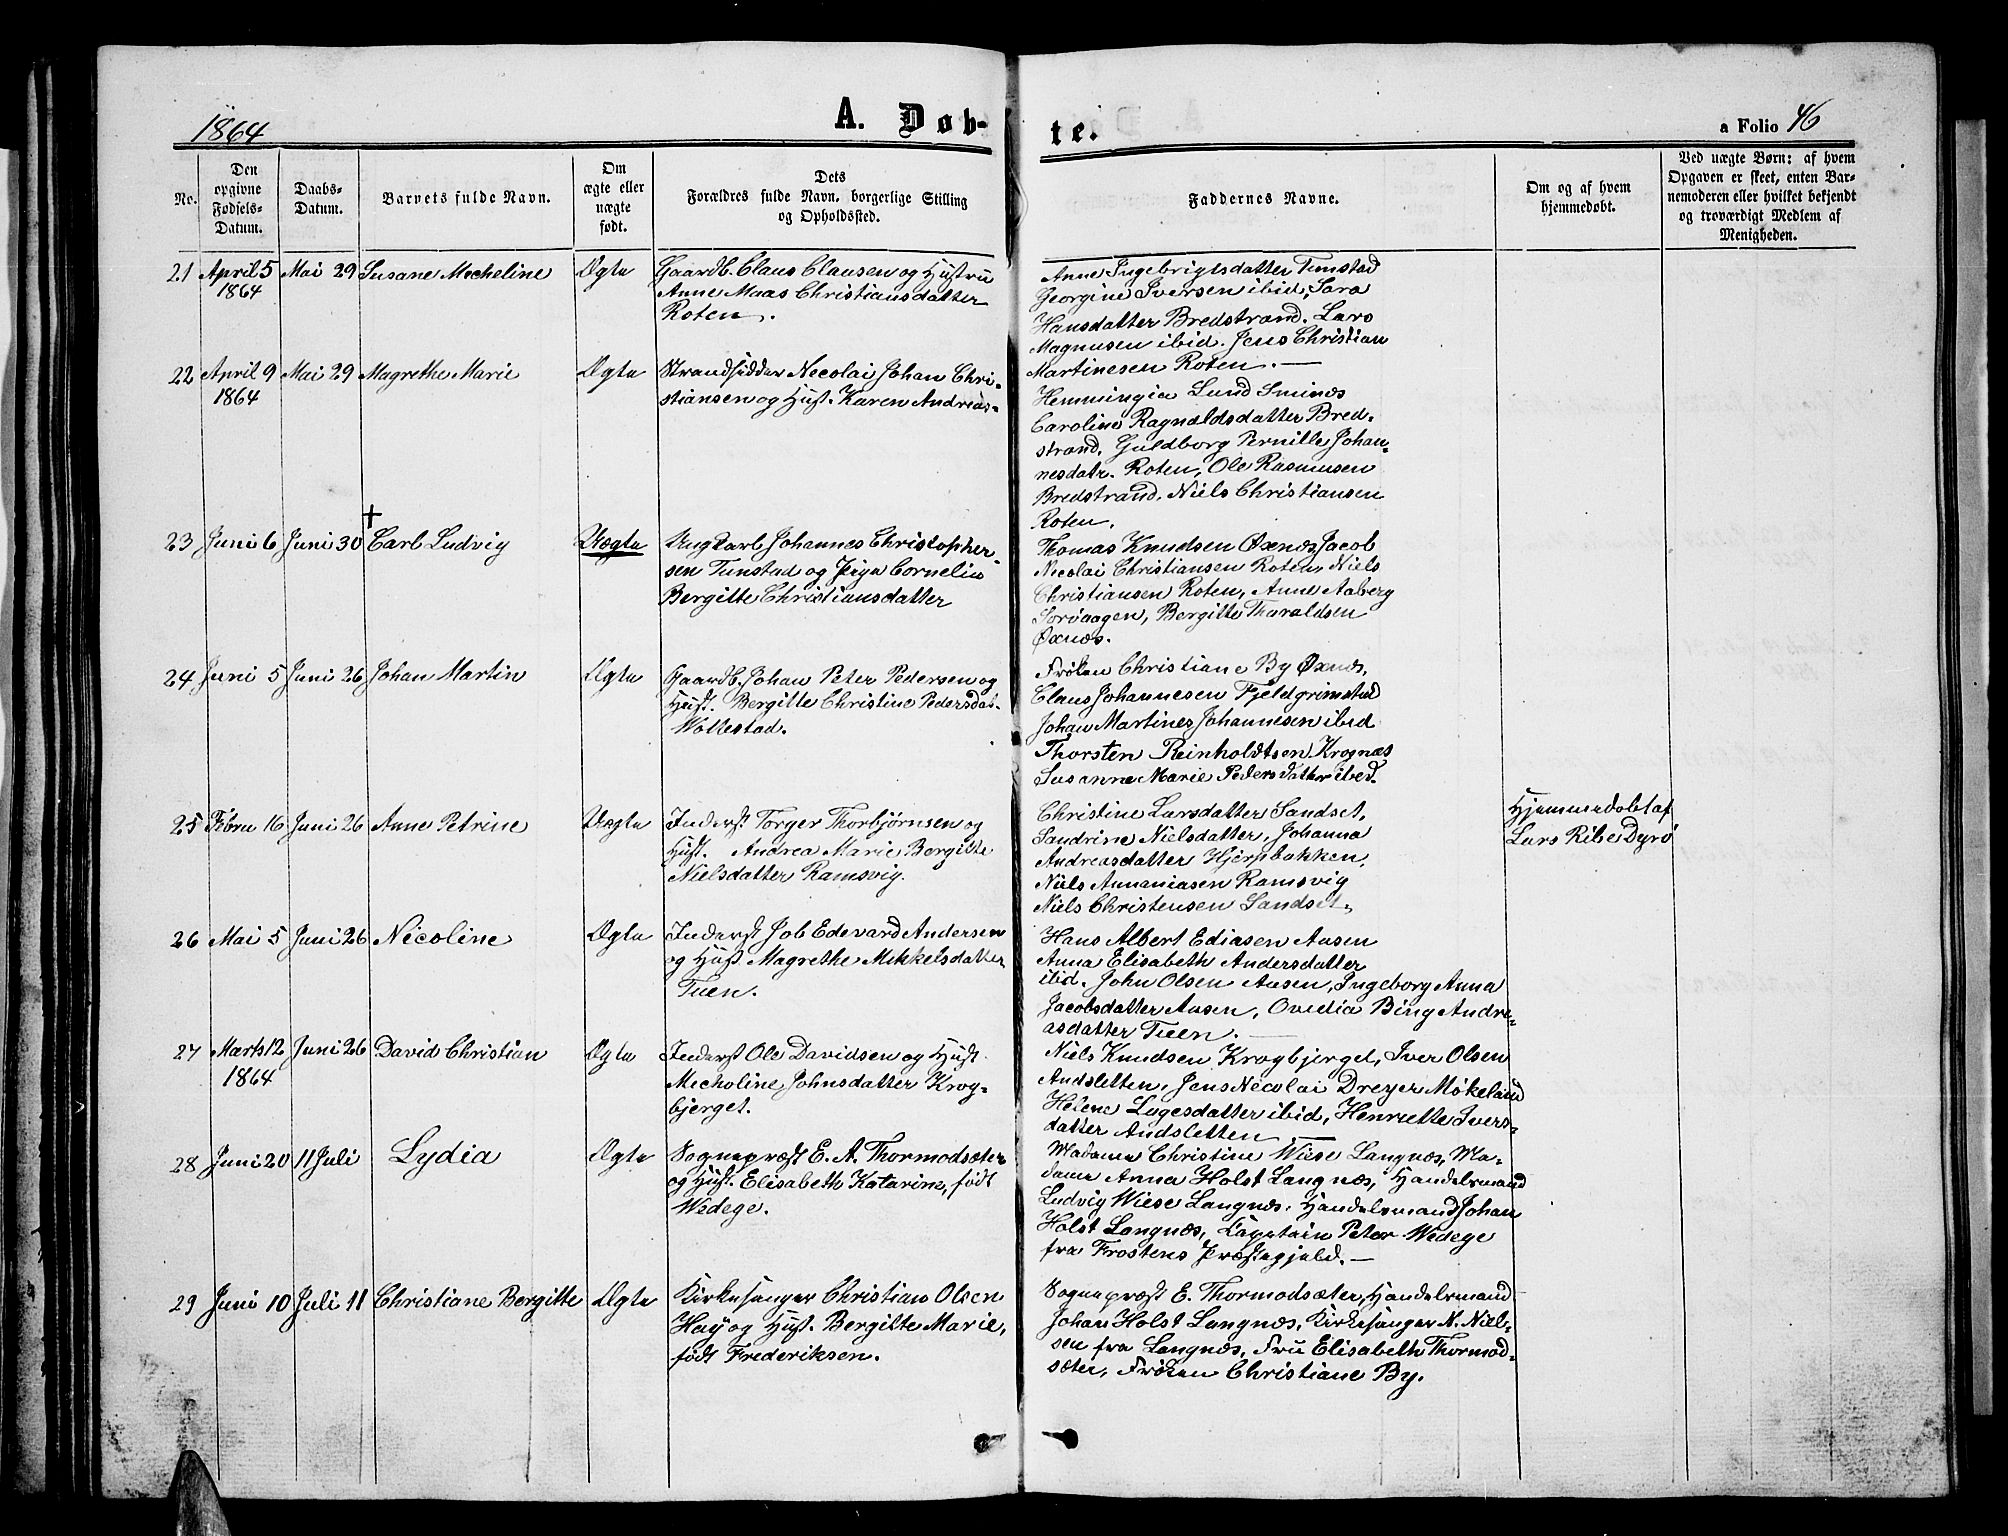 1864
A. Døb-
te.
a Folio 46
No.
Den
opgivne
Fødsels-
Datum.
Daabs-
Datum.
Barnets fulde Navn.
Om
ægte eller
uægte
født.
Dets
Forældres fulde Navn, borgerlige Stilling
og Opholdssted.
Faddernes Navne.
Om og af hvem
hjemmedøbt.
Ved uægte Børn: af hvem
Opgaven er skeet, enten Bar-
nemoderen eller hvilket bekjendt
og troværdigt Medlem af
Menigheden.
21 April 5 Mai 29 Susane Mecheline Ægte Gaardb. Claus Clausen og Hustru
1864 Anne Maas Christiansdatter
Roten.
Anne Ingebrigtsdatter Tunstad
Georgine Iversen ibid, Sara
Hansdatter Bredstrand. Lars
Magnusen ibid. Jens Christian
Martinesen Roten. —
22 April 9 Mai 29 Magrethe Marie Ægte Strandsidder Necolai Johan Chri-
1864 stiansen og Hust. Karen Andreas-
Hemmingia Lund Smines
Caroline Ragnaldsdatter Bred-
strand, Guldborg Pernille Johan-
nesdatr. Roten, Ole Rasmusen
Bredstrand. Niels Christiansen
Roten.
23 Juni 6 Juni 30 Carl Ludvig Uægte Ungkarl Johannes Christopher-
sen Tunstad og Pige Cornelia
Bergitte Christiansdatter
Thomas Knudsen Øxnes, Jacob
Necolai Christiansen Roten, Niels
Christiansen Roten, Anne Aaberg
Sørvaagen, Bergitte Tharaldsen
Øxnes.
24 Juni 5 Juni 26 Johan Martin Ægte Gaardb. Johan Peter Pedersen og
Hust. Bergitte Christine Pedersdat-
Wollestad.
Frøken Christiane By Øxnes,
Claus Johannesen Fjeldgrimstad
Johan Martines Johannesen ibid
Thorsten Reinholdtsen Krognæs
Susanne Marie Pedersdatter ibed.
25 Febru 16 Juni 26 Anne Petrine Uægte Inderst Torger Thorbjørnsen og
Hust. Andrea Marie Bergitte
Nielsdatter Ramsvig.
Christine Larsdatter Sandset,
Sandrine Nielsdatter, Johanna
Andreasdatter Hjerpbakken,
Niels Annaniasen Ramsvig
Niels Christensen Sandset.
Hjemmedøbt af
Lars Ribe Dyrø
26 Mai 5 Juni 26 Nicoline Ægte Inderst Job Edevard Andersen
og Hust Magrethe Mikkelsdatter
Tuen.
Hans Albert Ediasen Aasen
Anna Elisabeth Andersdatter
ibid. John Olsen Aasen, Ingeborg Anna
Jacobsdatter Aasen, Ovedia Bing Andre-
asdatter Tuen. —
27 Marts 12 Juni 26 David Christian Ægte Inderst Ole Davidsen og Hust.
1864 Mecholine Johnsdatter Krog-
bjerget.
Niels Knudsen Krogbjerget, Iver Olsen
Andsletten, Jens Necolai Dreyer Møkeland
Helene Lagesdatter ibid, Henriette Ivers-
datter Andsletten —
28 Juni 20 11 Juli Lydia Ægte Sognepræst E. A. Thormodsæter
og Hust. Elisabeth Katarine, født
Wedege.
Madame Christine Wiese Langnæs, Ma-
dame Anna Holst Langnæs, Handelsmand
Ludvig Wiese Langnæs, Handelsmand Johan
Holst Langnæs, Capitain Peter Wedege
fra Frostens Præstegjeld. —
29 Juni 10 Juli 11 Christiane Bergitte Ægte Kirkesanger Christian Olsen
Høy og Hust. Bergitte Marie,
født Frederiksen.
Sognepræst E. Thormodsæter, Handelsmand
Johan Holst Langnæs, Kirkesanger N. Niel-
sen fra Langnæs, Fru Elisabeth Thormod-
sæter, Frøken Christiane By.